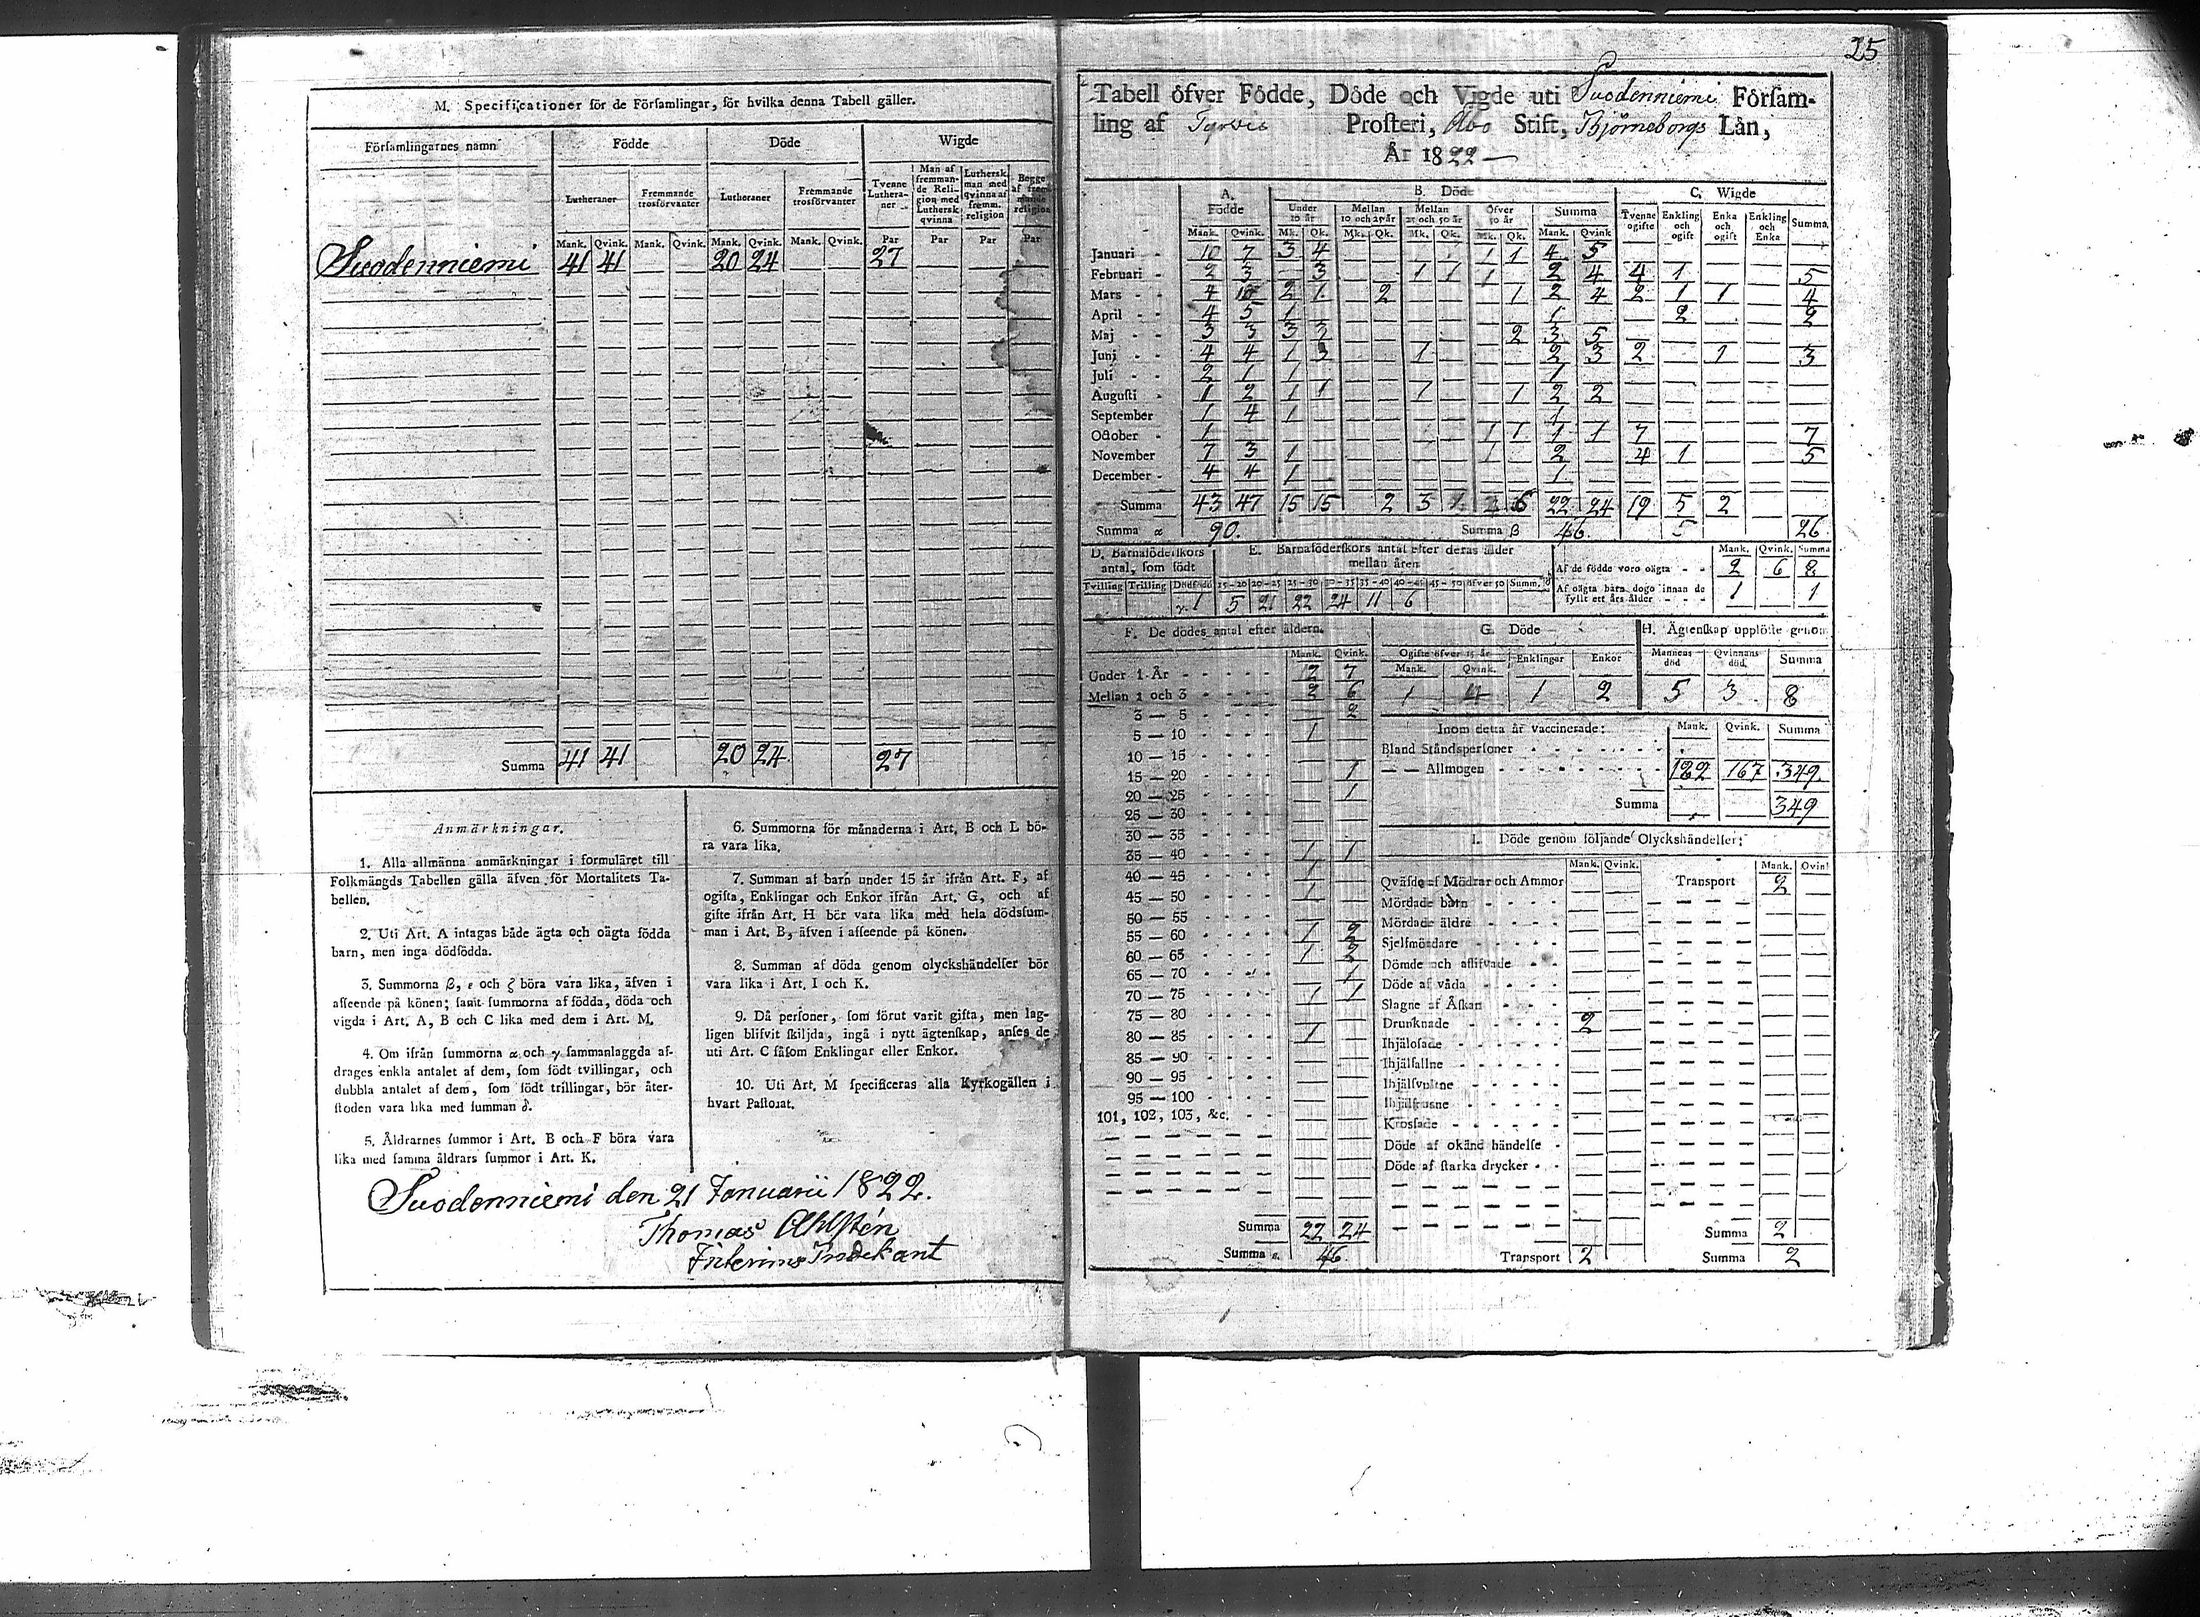 M. Specificationer för de Församlingar, för hvilka denna Tabell gäller.
Församlingarnes namn Födde Döde Wigde
Lutheraner Fremmande trosförvanter Lutheraner Fremmande trosförvanter Tvenne Lutheraner Man af fremmande Religion med Luthersk qvinna Luthersk man med qvinna af fremm. religion Begge af fremmande religion
Mank. Qvink. Mank. Qvink. Mank. Qvink. Mank. Qvink. Par Par Par Par
Suodenniemi 41 41 20 24 27
Summa 41 41 20 24 27
Anmärkningar.
1. Alla allmänna anmärkningar i formuläret till
Folkmängds Tabellen gälla äfven för Mortalitets Ta-
bellen.
2. Uti Art. A intagas både ägta och oägta födda
barn, men inga dödfödda.
3. Summorna β, ε och ζ böra vara lika, äfven i
afseende på könen; samt summorna af födda, döda och
vigda i Art. A, B och C lika med dem i Art. M.
4. Om ifrån summorna α och γ sammanlaggda af-
drages enkla antalet af dem, som födt tvillingar, och
dubbla antalet af dem, som födt trillingar, bör åter-
stoden vara lika med summan δ.
5. Åldrarnes summor i Art. B och F böra vara
lika med samma åldrars summor i Art. K.
6. Summorna för månaderna i Art. B och L bö-
ra vara lika.
7. Summan af barn under 15 år ifrån Art. F, af
ogifta, Enklingar och Enkor ifrån Art. G, och af
gifte ifrån Art. H bör vara lika med hela dödsfum-
man i Art. B, äfven i afseende på könen.
8. Summan af döda genom olyckshändelser bör
vara lika i Art. I och K.
9. Då personer, som förut varit gifta, men lag-
ligen blifvit skiljda, ingå i nytt ägtenskap, anses de
uti Art. C såsom Enklingar eller Enkor.
10. Uti Art. M specificeras alla Kyrkogällen i
hvart Pastorat.
Suodenniemi den 21 Januarii 1822.
Thomas Ahlstén
25
Tabell öfver Födde, Döde och Vigde uti Suodenniemi Försam-
ling af Tyrvis Prosteri, Åbo Stift, Björneborgs Län,
År 1822
A. Födde B. Döde C. Wigde
Under 10 år Mellan 10 och 25 år Mellan 25 och 50 år Öfver 50 år Summa Tvenne ogifte Enkling och ogift Enka och ogift Enkling och Enka Summa
Mank. Qvink. Mk. Qk. Mk. Qk. Mk. Qk. Mk. Qk. Mank. Qvink
Januari 10 7 3 4 1 1 4 5
Februari 2 3 3 1 1 1 2 4 4 1 5
Mars 4 2 1 2 1 2 4 2 1 1 4
April 4 5 1 1 2 2
Maj 3 3 3 3 2 3 5
Junj 4 4 1 3 1 2 3 2 1 3
Juli 2 1 1 1
Augusti 1 2 1 1 1 1 2 2
September 1 4 1 1
October 1 1 1 1 1 7 7
November 7 3 1 1 2 4 1 5
December 4 4 1 1
Summa 43 47 15 15 2 3 1 6 22 24 19 5 2
Summa α 90. Summa β 46 5 26
D. Barnaföderskors antal, som födt E. Barnaföderskors antal efter deras ålder mellan åren Mank. Qvink. Summa
Af de födde voro oägta 2 6 8
Tvilling Trilling Dödfödd 15-20 20-25 25-30 30-35 35-40 40-45 45-50 öfver 50 Summ. δ
Af oägta barn dogo innan de fyllt ett års ålder 1 1
γ. 1 5 21 22 24 11 6
F. De dödes antal efter åldern. G. Döde H. Ägtenskap upplöste genom
Mank. Qvink. Ogifte öfver 15 år Enklingar Enkor Mannens död Qvinnans död. Summa
Mank. Qvink.
Under 1 År 12 7
Mellan 1 och 3 2 6 1 4 1 2 5 3 8
3 — 5 2
5 — 10 1
10 — 15
15 — 20 1
20 — 25 1
25 — 30
30 — 35
35 — 40 1 1
40 — 45 1
45 — 50 1
50 — 55
55 — 60 1 2
60 — 65 1 2
65 — 70 1
70 — 75 1 1
75 — 80
80 — 85 1
85 — 90
90 — 95
95 — 100
101, 102, 103, &c.
Summa 22 24
Summa ε. 46
Inom detta år vaccinerade: Mank. Qvink. Summa
Bland Ståndspersoner
— — Allmogen 182 167 349
Summa 349
I. Döde genom följande Olyckshändelser:
Mank. Qvink. Mank. Qvink
Qväfde af Mödrar och Ammor Transport 2
Mördade barn
Mördade äldre
Sjelfmördare
Dömde och aflifvade
Döde af våda
Slagne af Åskan
Drunknade 2
Ihjälosade
Ihjälfallne
Ihjälsvultne
Ihjälfrusne
Krossade
Döde af okänd händelse
Döde af starka drycker
Summa 2
Transport 2 Summa 2